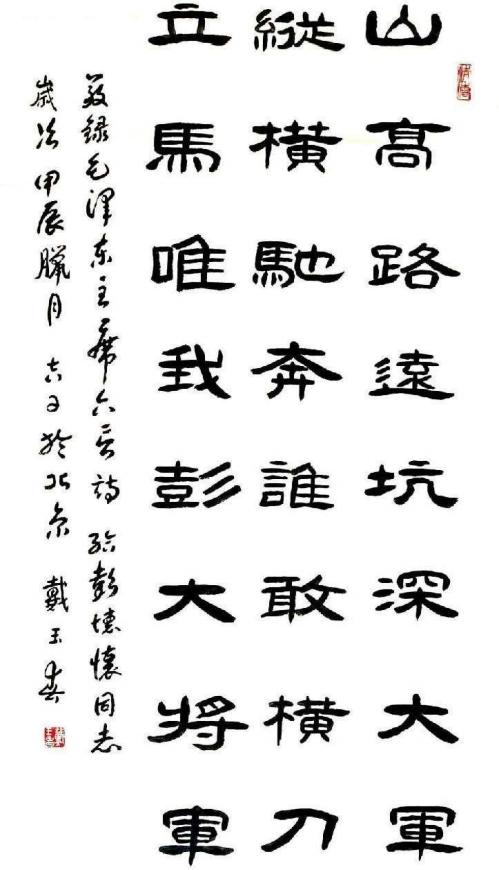 山高路遠坑深大軍
縱橫馳奔誰敢橫刀
立馬唯我彭大將軍
敬錄毛澤东主席六言詩 給彭德懷同志
歲次甲辰臘月 吉日於北京 戴玉春